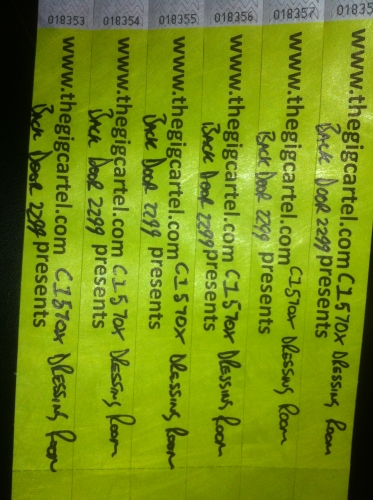 018353 018354 018355 018356 018357 01835
www.thegigcartel.com C1570X DRESSING Room
BACK DOOR 2299 presents
www.thegigcartel.com C1570X DRESSING Room
BACK DOOR 2299 presents
www.thegigcartel.com C1570X DRESSING Room
BACK DOOR 2299 presents
www.thegigcartel.com C1570X DRESSING Room
BACK DOOR 2299 presents
www.thegigcartel.com C1570X DRESSING Room
BACK DOOR 2299 presents
www.thegigcartel.com C1570X DRESSING Room
BACK DOOR 2299 presents